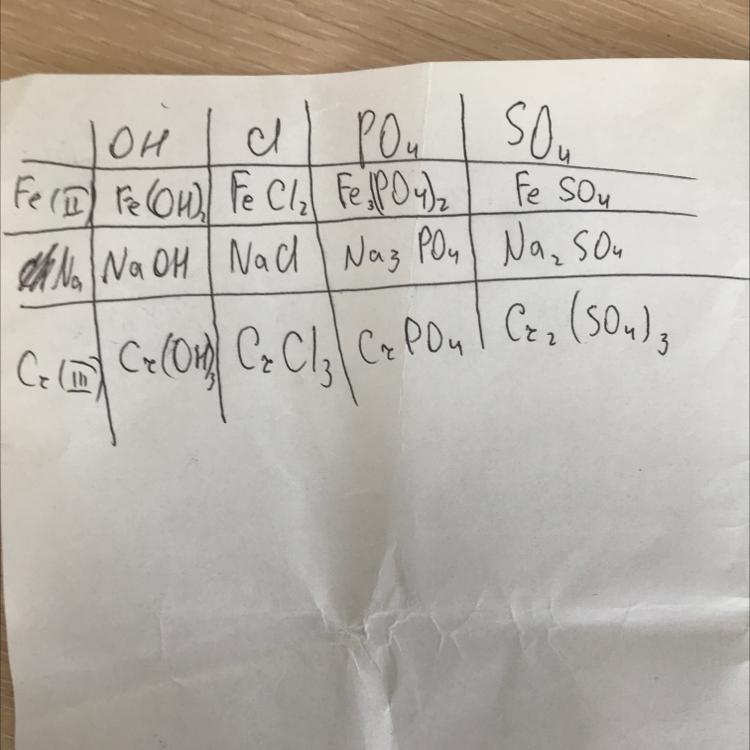 OH Cl PO₄ SO₄
Fe(II) Fe(OH)₂ FeCl₂ Fe₃(PO₄)₂ FeSO₄
Na NaOH NaCl Na₃PO₄ Na₂SO₄
Cr(III) Cr(OH)₃ CrCl₃ CrPO₄ Cr₂(SO₄)₃